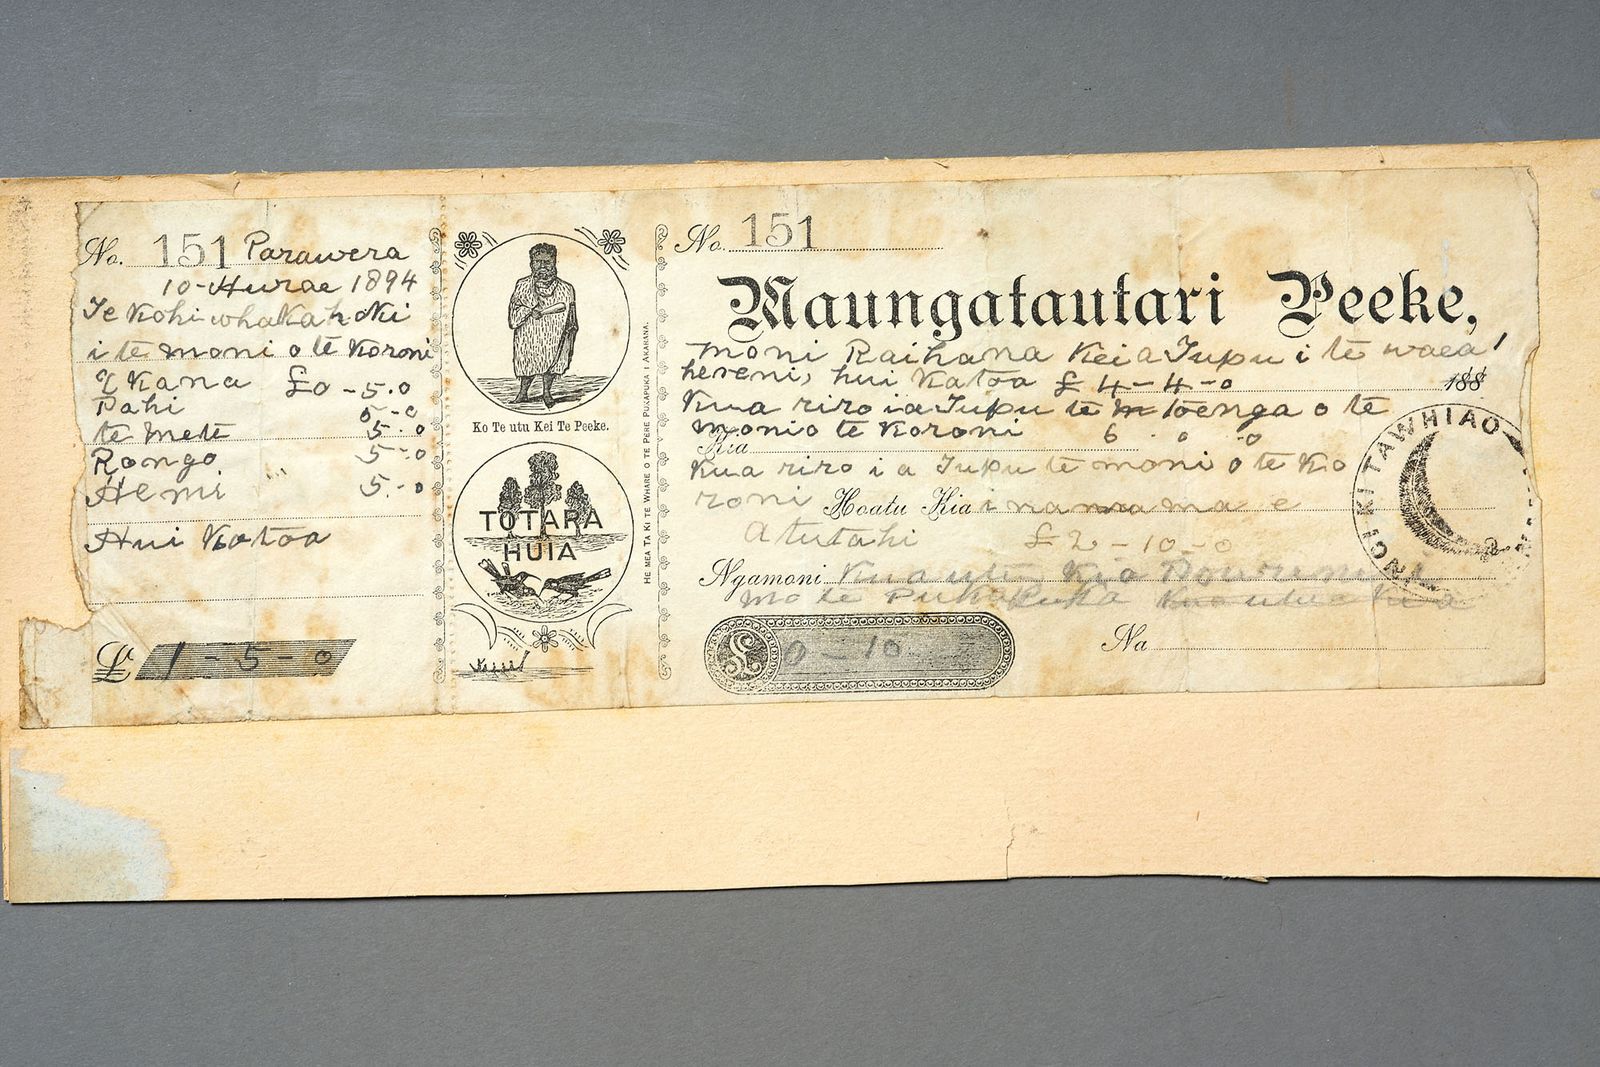 No. 151 Parawera
10-Hurae 1894
Te Kohi whakahoki
i te moni o te Koroni
Kana £0-5-0
Pahi 5-0
te mete 5-0
Rongo 5-0
Hemi 5-0
Hui Katoa
£ 1-5-0
Ko Te utu Kei Te Peeke.
TOTARA
HUIA
HE MEA TA KI TE WHARE O TE PERE PUKAPUKA I AKARANA.
No. 151
Maungatautari Peeke,
moni Raihana Kei a Tupu i te waea 1
hereni, hui Katoa £ 4-4-0
188
Kua riro i a Tupu te toenga o te
moni o te Koroni 6 . 0 -0
Kia
Kua riro i a Tupu te moni o te Ko
roni Hoatu Kia i nanua ma e
Atutahi £2-10-0
Ngamoni Kua utu Kia
mo te Pukapuka Kua utua Kia
0-10
Na
KI TAWHIAO